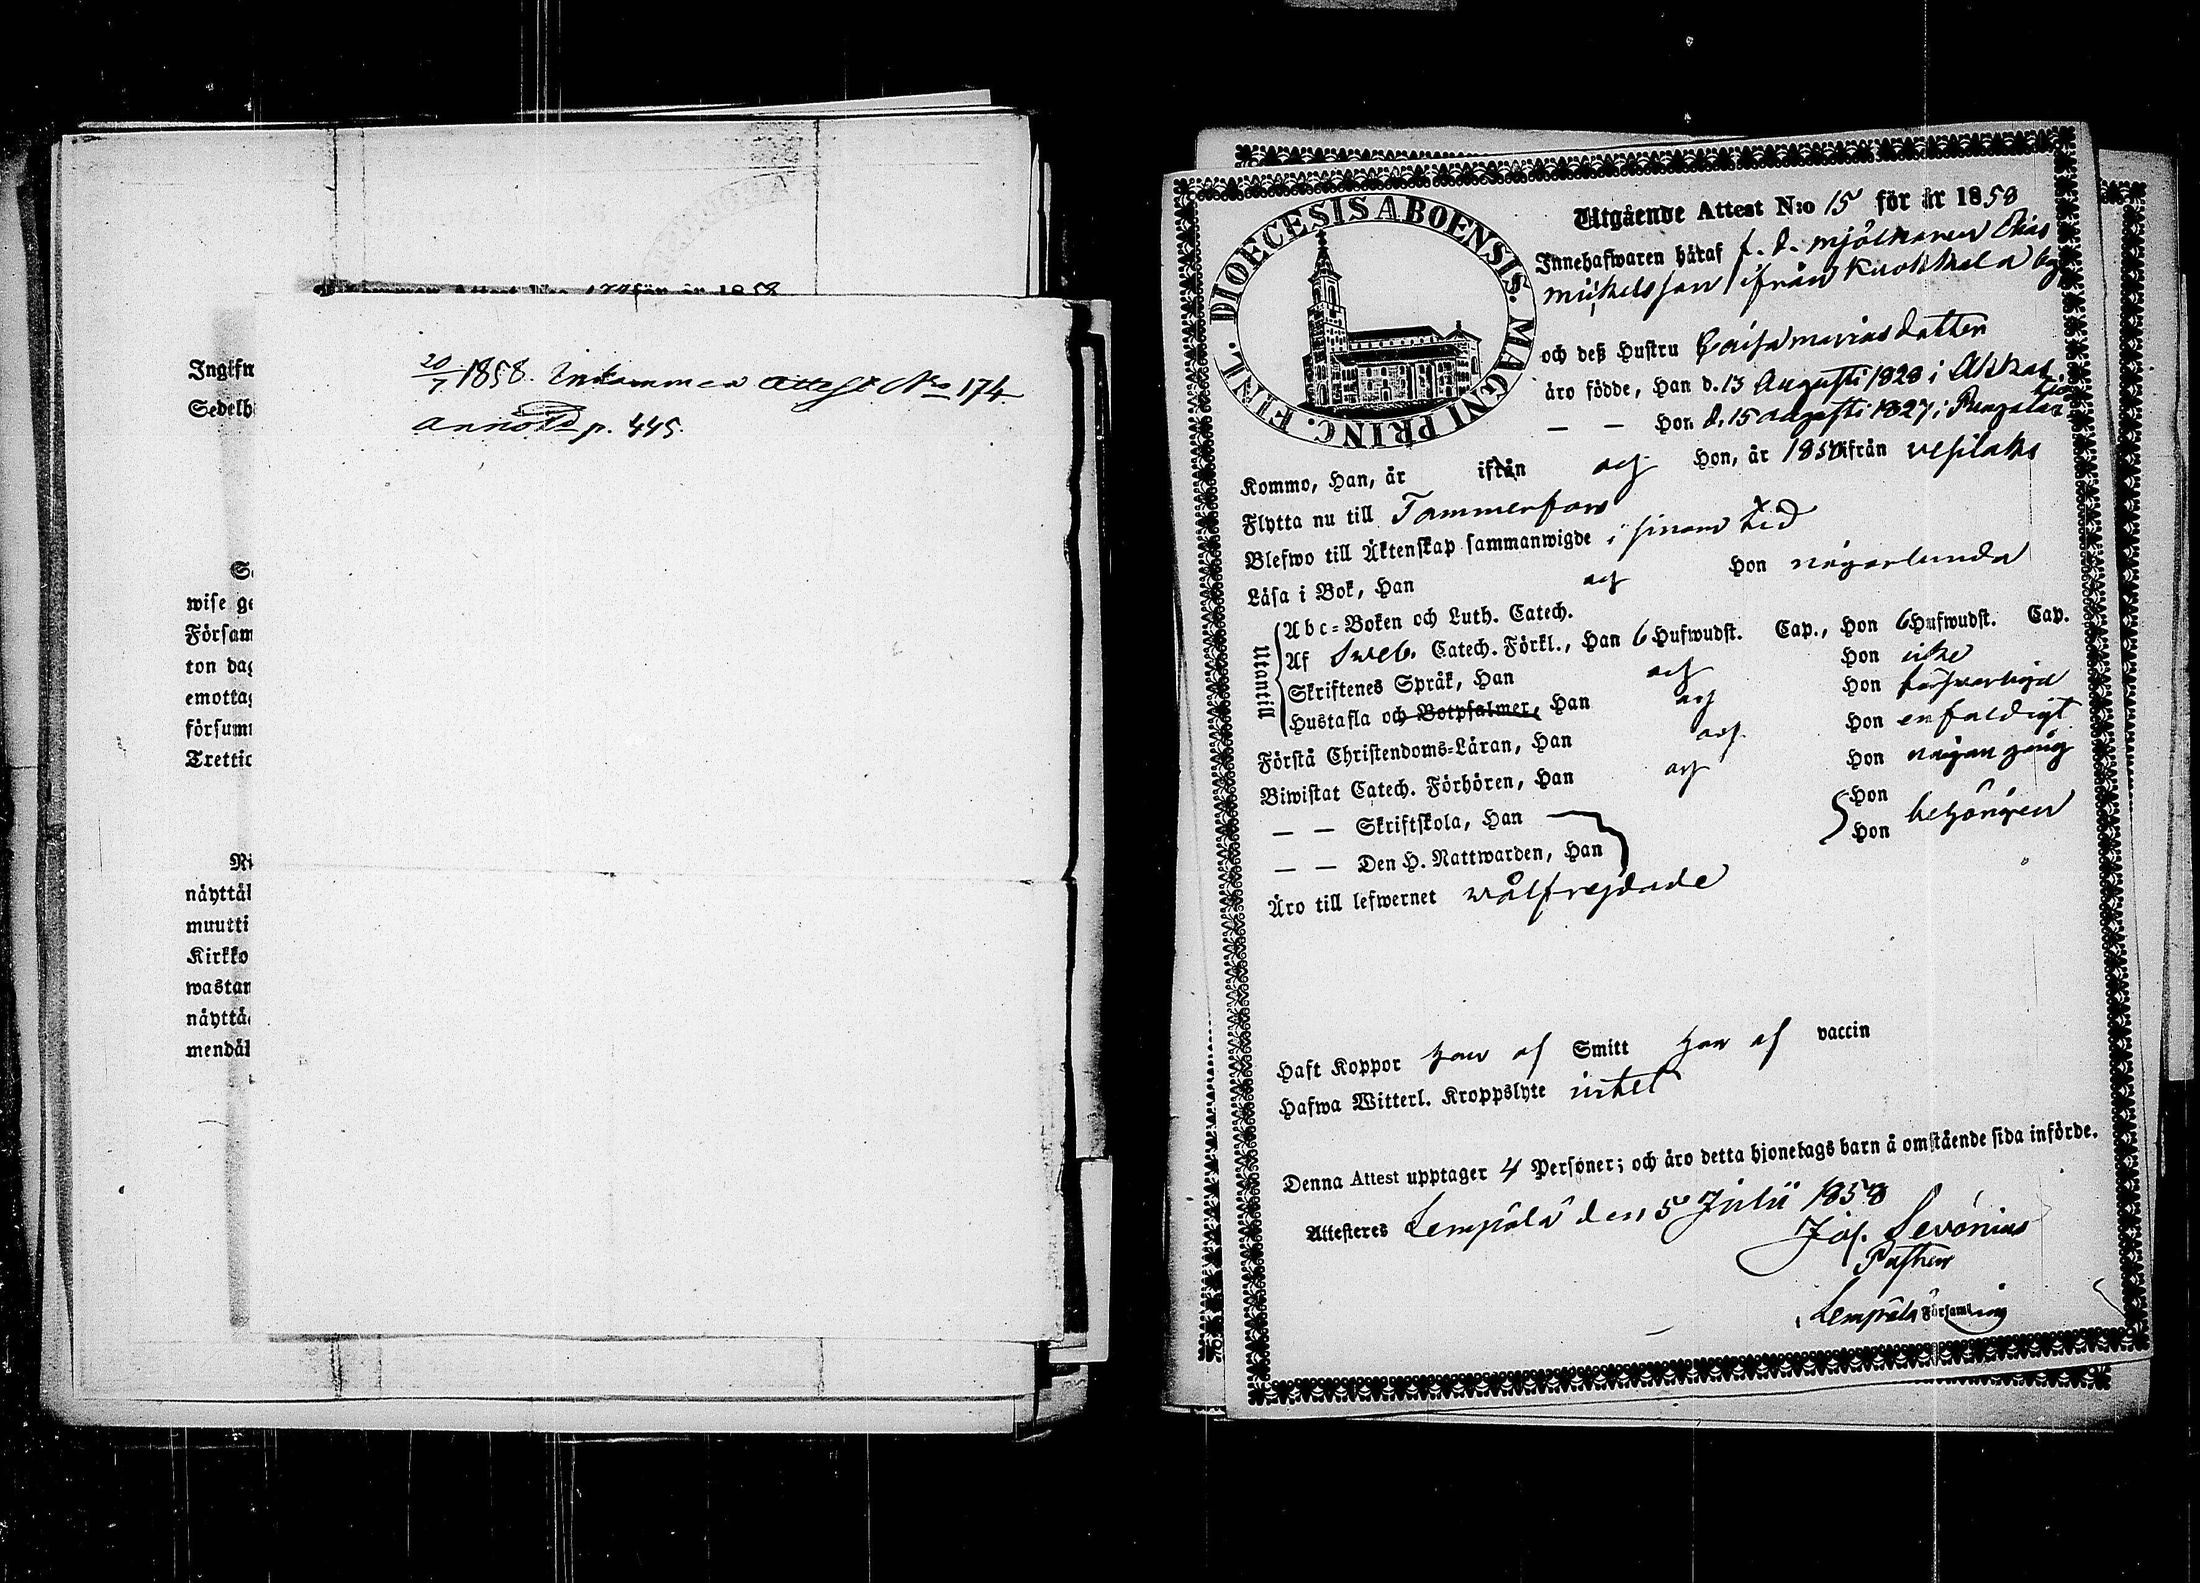 Inkommen Attest N:o 174 för år 1858
Ingifn
Sedelh
20/7 1858. Inkommen attest No 174
annoterd p. 445.
wise ge
Försam
ton dag
emottag
försum
Trettio
Ni
näyttäl
muutti
Kirkko
wastan
näyttä
mendäl
DIOECESIS ABOENSIS. MAGNI PRINC. FINL.
Utgående Attest N:o 15 för år 1858
Innehafwaren häraf f. d. mjölnaren Elias
Mickelsson ifrån Kuokkala by
och deß Hustru Caisa mariasdotter
äro födde, Han d. 13 Augusti 1828 i Akkas
— — Hon d. 15 augusti 1827 i
Kommo, Han, år ifrån och Hon, år 1850 ifrån vesilaks
Flytta nu till Tammerfors
Blefwo till Äktenskap sammanwigde i sinom tid
Läsa i Bok, Han och Hon någorlunda
Utantill
Abc-Boken och Luth. Catech.
Af Sweb. Catech. Förkl., Han 6 Hufwudst. Cap., Hon 6 Hufwudst. Cap.
Skriftenes Språk, Han och Hon icke
Hustafla och Botpsalmer, Han och Hon försvarligen
Förstå Christendoms-Läran, Han och Hon enfaldigt
Biwistat Catech. Förhören, Han och Hon någon gång
— — Skriftskola, Han Hon
— — Den H. Nattwarden, Han Hon behörigen
Äro till lefwernet wälfrejdade
Haft Koppor han af Smitt hon af vaccin
Hafwa Witterl. Kroppslyte intet
Denna Attest upptager 4 Personer; och äro detta hjonelags barn å omstående sida införde.
Attesteras Lempälä den 5 Julii 1858
Jos. Sevónius
Pastor
i Lempälä Församling